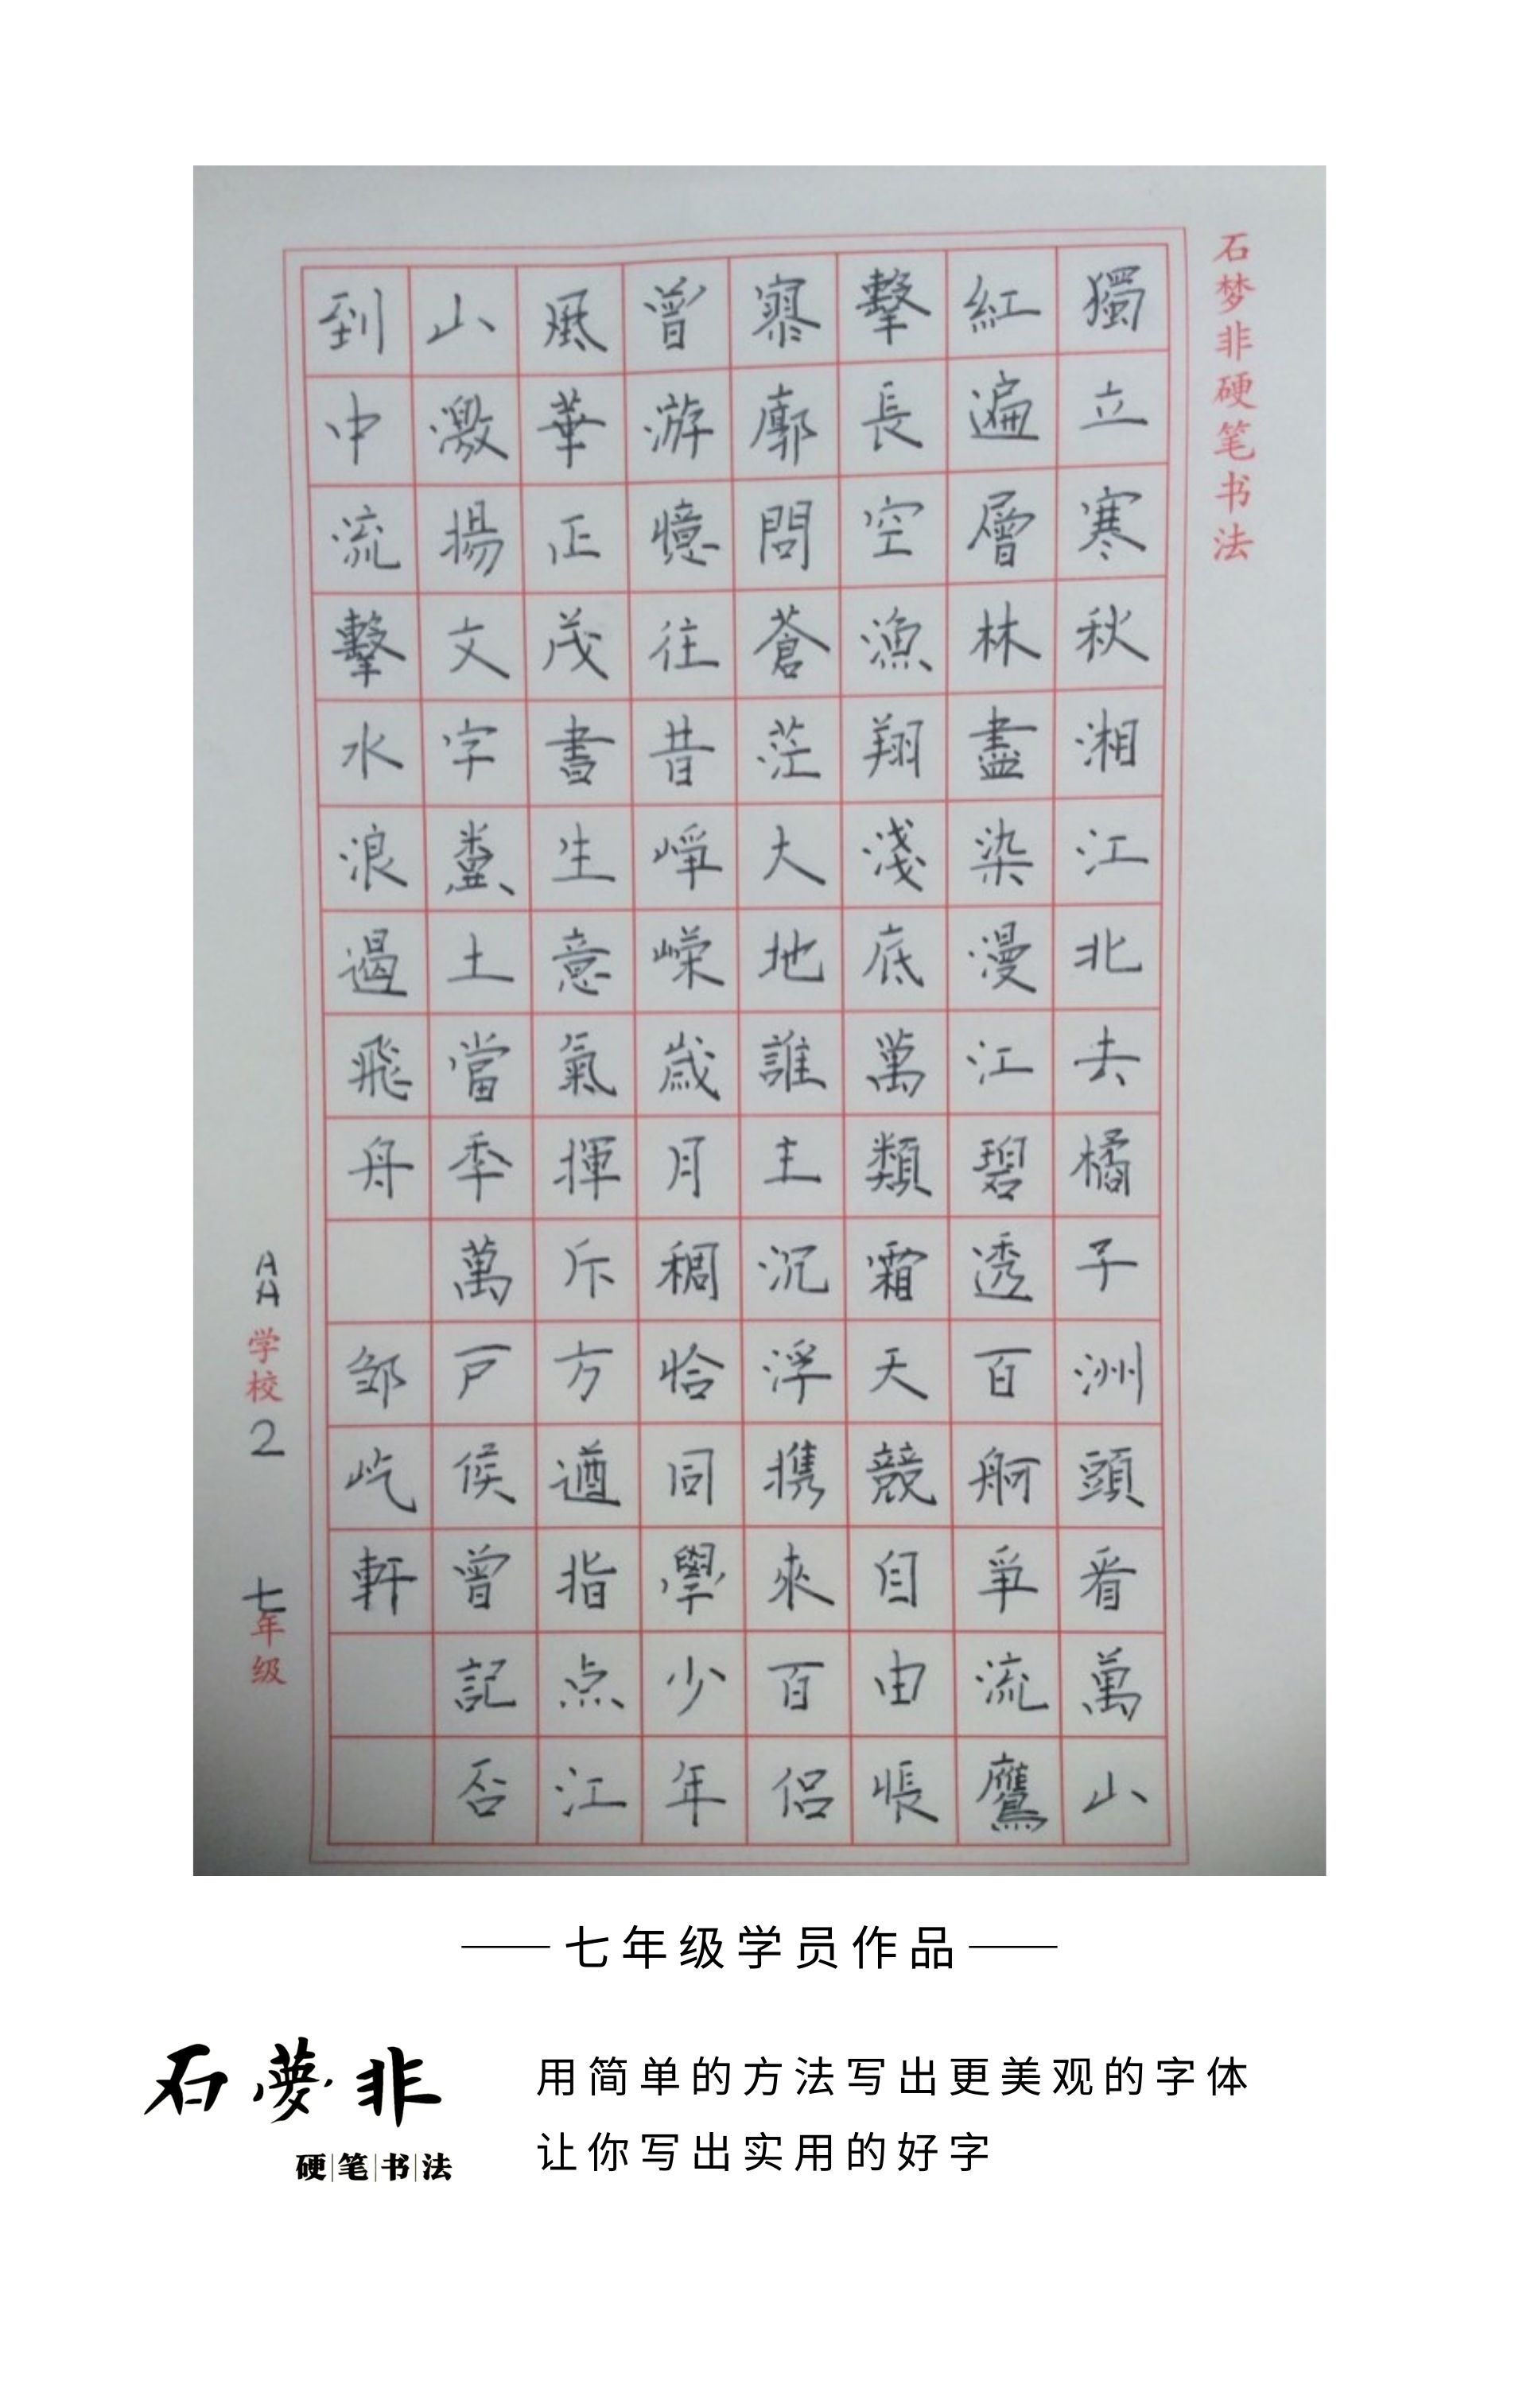 石梦非硬笔书法
獨立寒秋湘江北去橘子洲頭看萬山
紅遍層林盡染漫江碧透百舸爭流鷹
擊長空漁翔淺底萬類霜天競自由悵
寥廓問蒼茫大地誰主沉浮携來百侶
曾游憶往昔崢嶸歲月稠恰同學少年
風華正茂書生意氣揮斥方遒指点江
山激揚文字糞土當年萬戶侯曾記否
到中流擊水浪遏飛舟 邹屹軒
AA学校2 七年级
七年级学员作品
石夢非
硬笔书法
用简单的方法写出更美观的字体
让你写出实用的好字